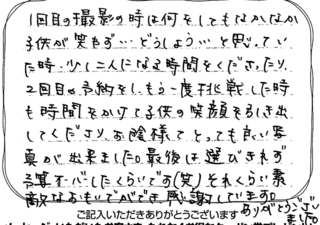 1回目の撮影の時は何をしてもなかなか
子供が笑わず…どうしよう…と思ってい
た時、少し二人になる時間をくださったり
2回目の予約をし、もう一度挑戦した時
も時間をかけて子供の笑顔を引き出
してくださり、お陰様でとっても良い写
真が出来ました。最後は選びきれず
予算オーバーしたくらいです(笑)それくらい素
敵なおもいでができ感謝しています。
ありがとうござい
ました。
ご記入いただきありがとうございます